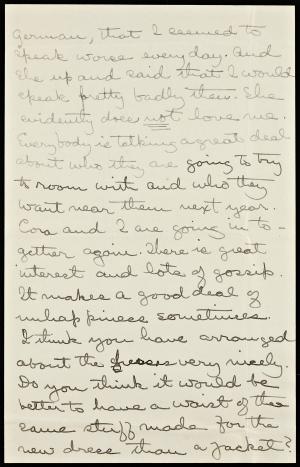 German, that I seemed to
speak worse every day. And
she up and said that I would
speak pretty badly then. She
evidently does not love me.
Everybody is talking a great deal
about who they are going to try
to room with and who they
want near them next year.
Cora and I are going in to-
gether again. There is great
interest and lots of gossip.
It makes a good deal of
unhappiness sometimes.
I think you have arranged
about the dresses very nicely.
Do you think it would be
better to have a waist of the
same stuff made for the
new dress than a jacket?